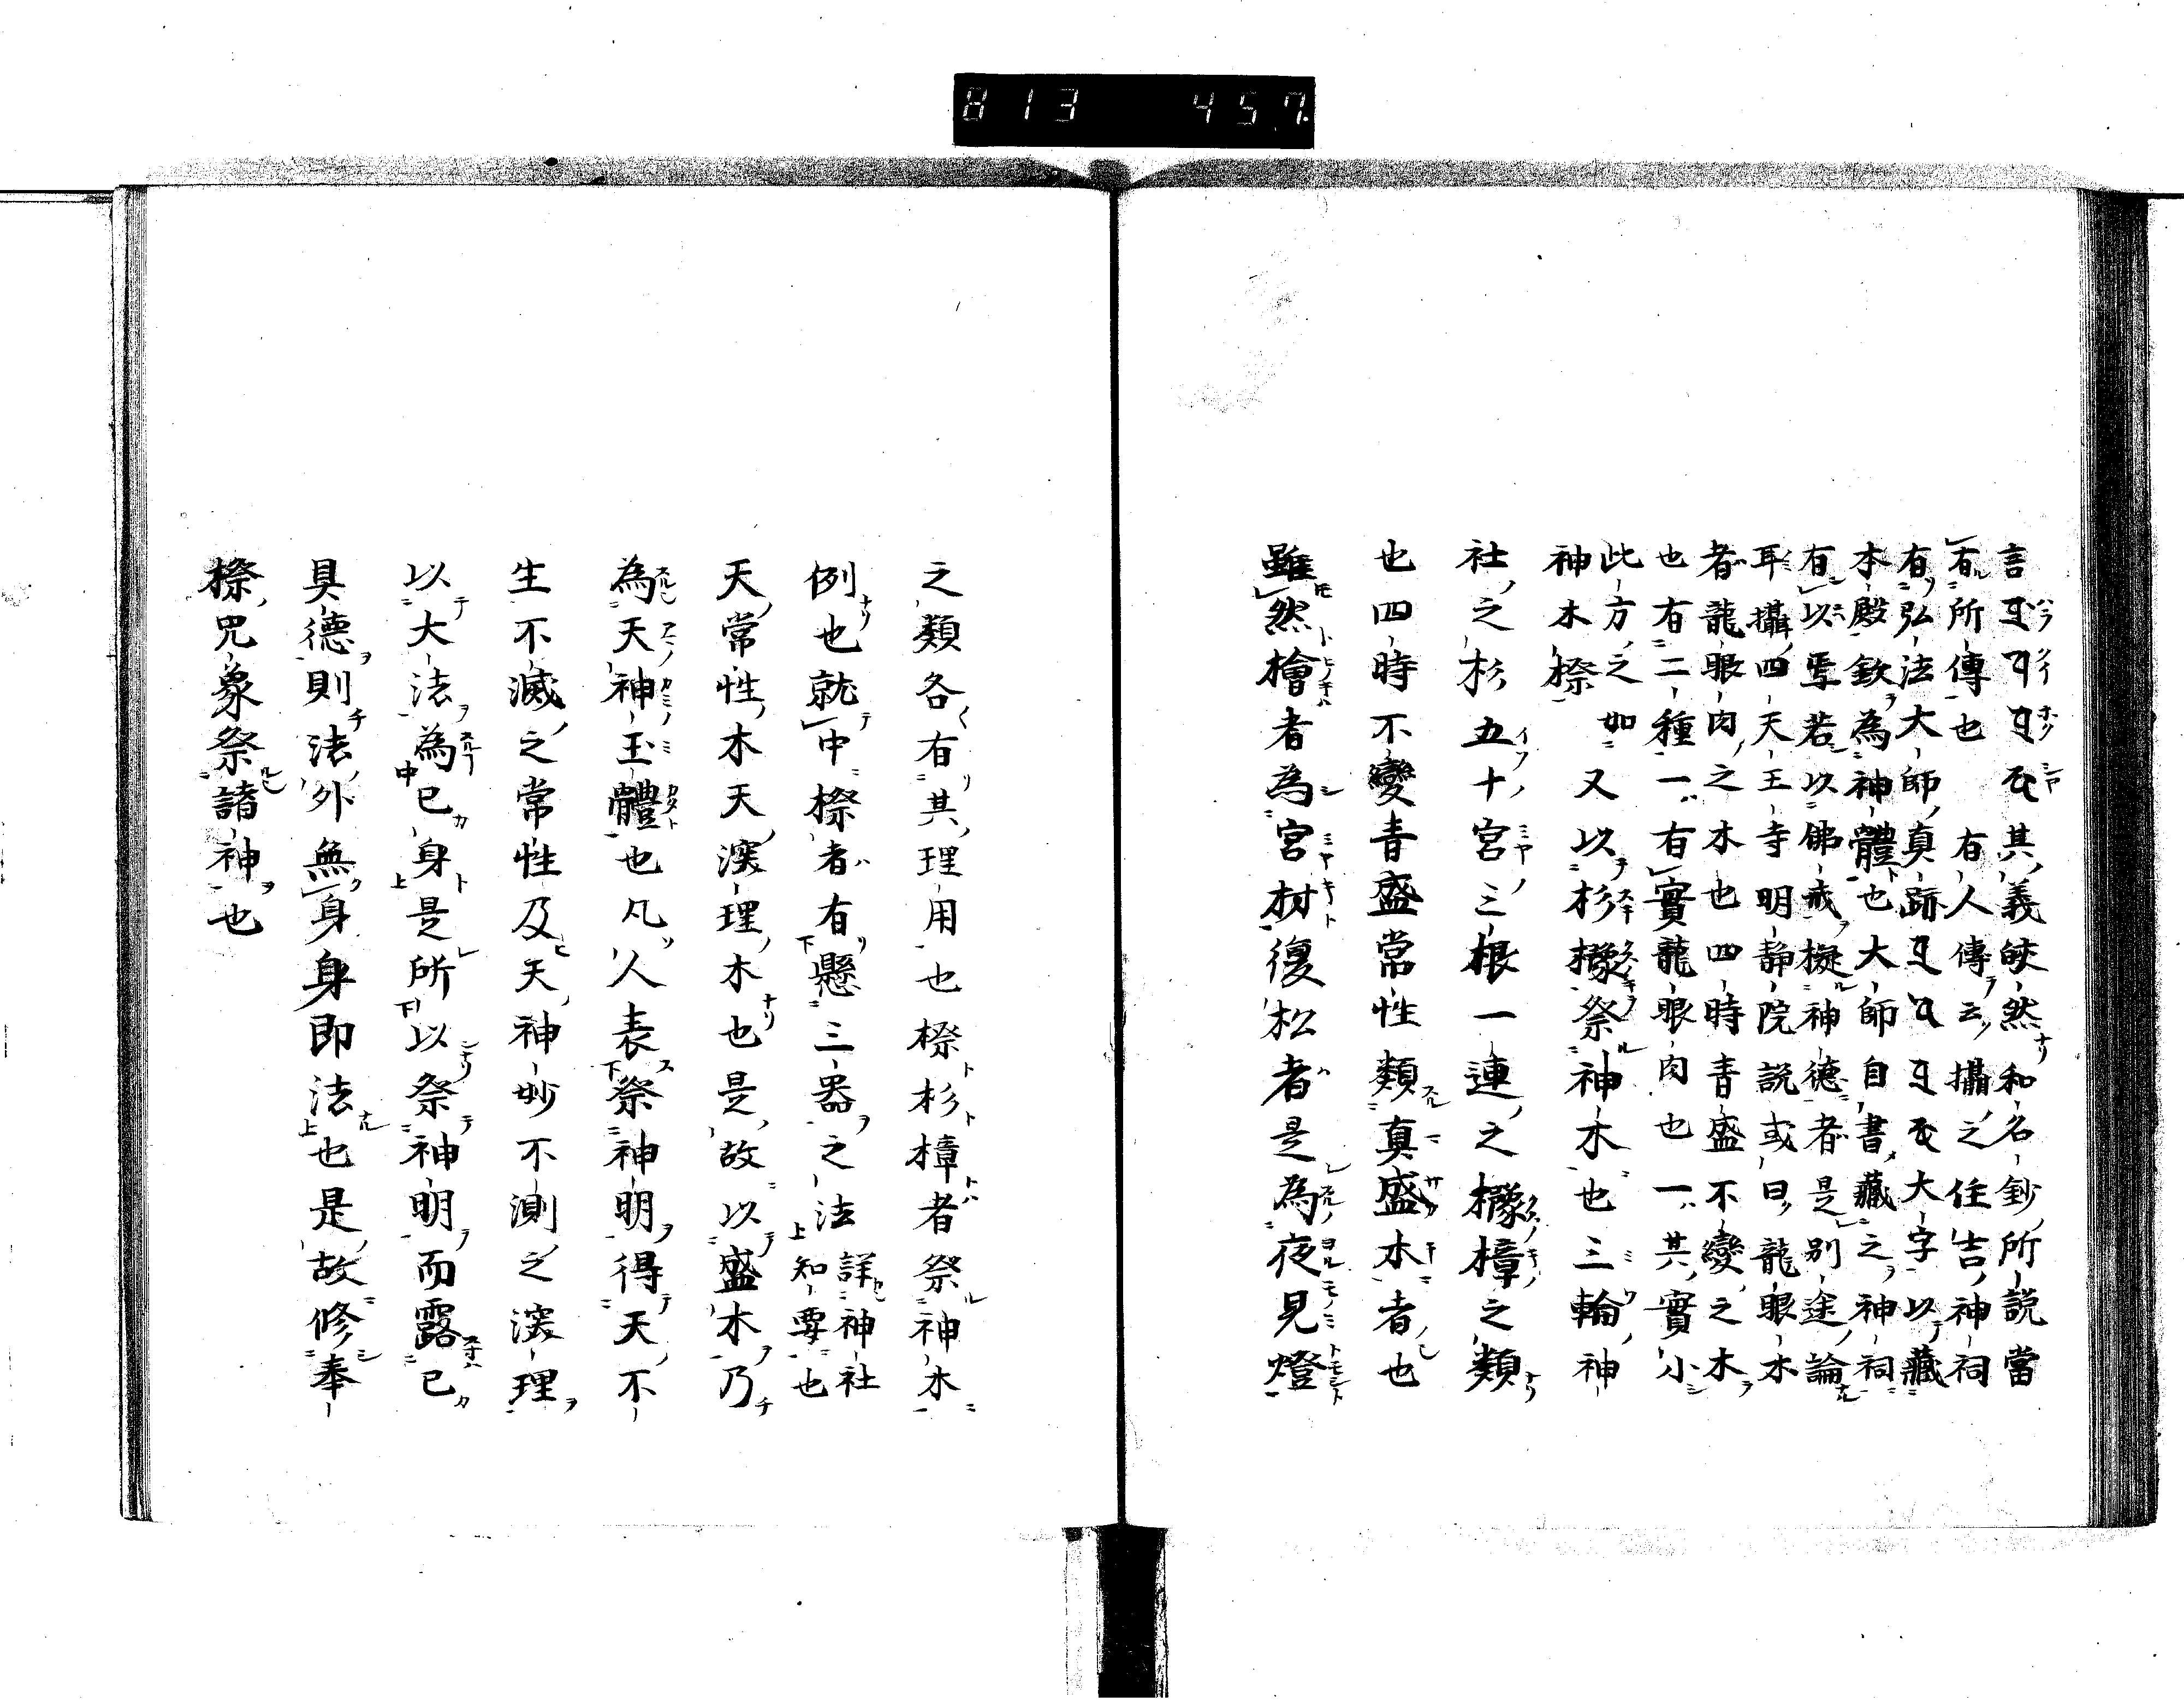 813 457
言其義皎然和名鈔所説當
有所傳也 有人傳云攝之住吉神祠
有弘法大師真跡大字以藏
本殿欽為神體也大師自書藏之神祠
有以焉若以佛戒擬神德者是別途論
耳攝四天王寺明静院説或曰龍眼木
者龍眼肉之木也四時青盛不變之木
也有二種一有實龍眼肉也一其實小
此方之 如又以杉橡祭神木也三輪神
神木榇
社之杉五十宮三根一連之橡樟之類
也四時不變青盛常性類真盛木者也
雖然檜者為宮材復松者是為夜見燈
之類各有其理用也榇杉樟者祭神木
例也就中榇者有懸三器之法詳神社
知要也
天常性木天深理木也是故以盛木乃
為天神玉體也凡人表祭神明得天不
生不滅之常性及天神妙不測之深理
以大法為己身是所以祭神明而露己
具德則法外無身身即法也是故修奉
榇咒象祭諸神也